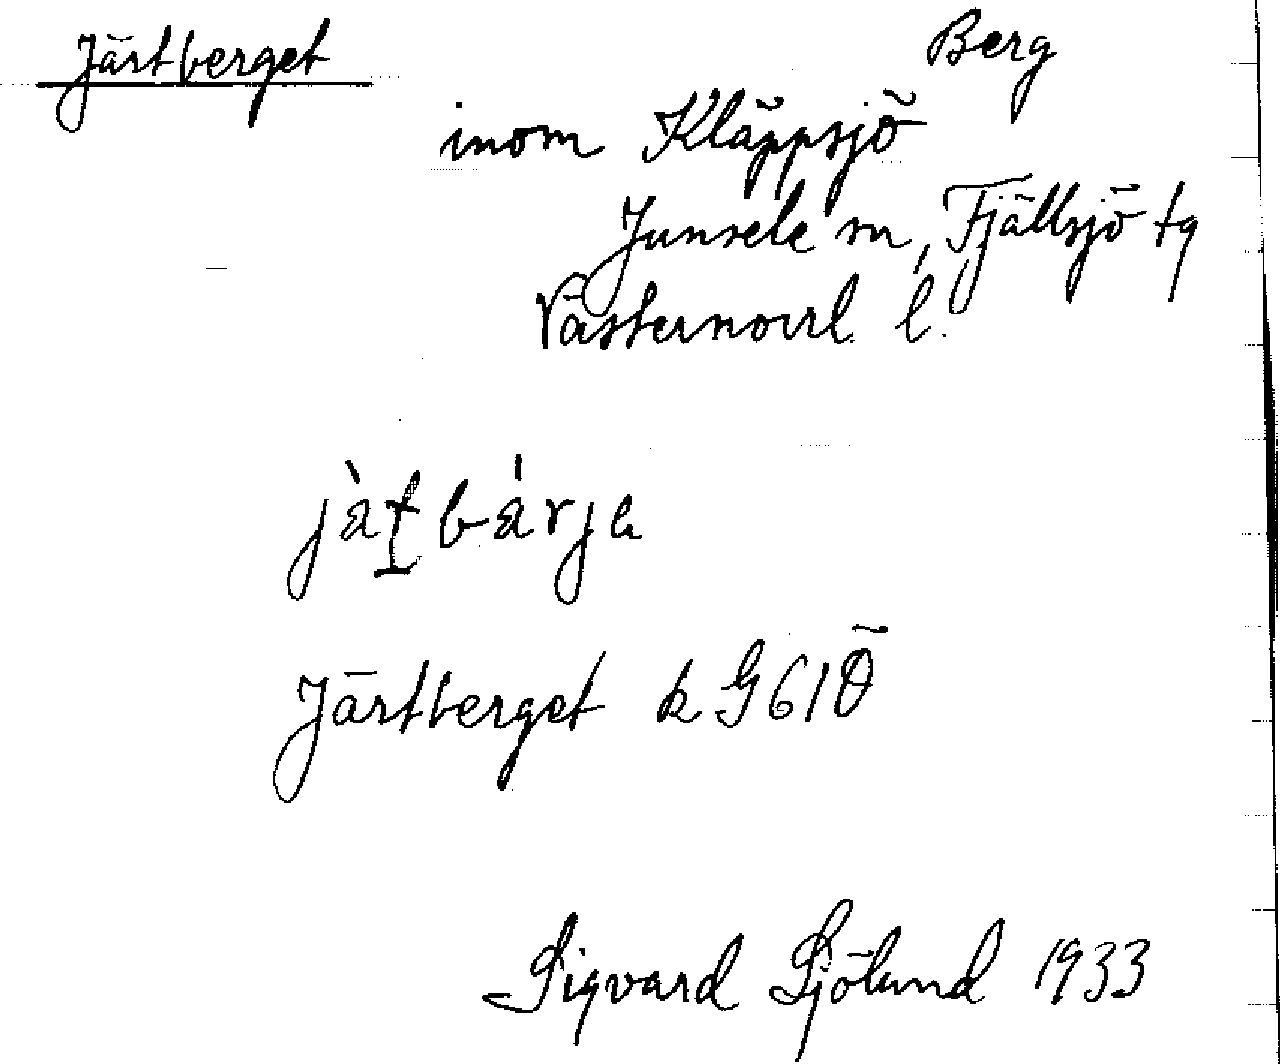 Järtberget Berg
inom Kläppsjö
Junsele sn, Fjällsjö tg
Västernorrl. l.
Järtberget k G61Ö
Sigvard Sjölund 1933